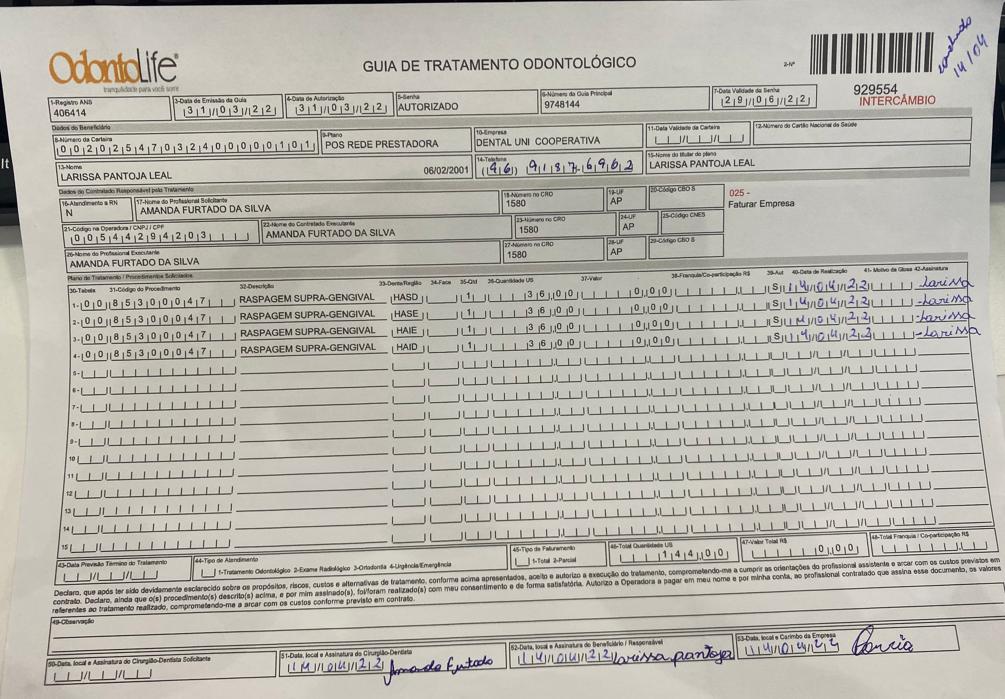 OdontoLife
tranquilidade para você sorrir
GUIA DE TRATAMENTO ODONTOLÓGICO
2-Nº
929554
INTERCÂMBIO
14/04
1-Registro ANS
406414
3-Data de Emissão da Guia
31/03/22
4-Data de Autorização
31/03/22
5-Senha
AUTORIZADO
6-Número da Guia Principal
9748144
7-Data Validade da Senha
29/06/22
Dados do Beneficiário
8-Número da Carteira
00202547032400000101
9-Plano
POS REDE PRESTADORA
10-Empresa
DENTAL UNI COOPERATIVA
11-Data Validade da Carteira
12-Número do Cartão Nacional de Saúde
13-Nome
LARISSA PANTOJA LEAL 06/02/2001
14-Telefone
(96) 9187-6962
15-Nome do titular do plano
LARISSA PANTOJA LEAL
Dados do Contratado Responsável pelo Tratamento
16-Atendimento a RN
N
17-Nome do Profissional Solicitante
AMANDA FURTADO DA SILVA
18-Número no CRO
1580
19-UF
AP
20-Código CBO S
025 -
Faturar Empresa
21-Código na Operadora / CNPJ / CPF
00544294203
22-Nome do Contratado Executante
AMANDA FURTADO DA SILVA
23-Número no CRO
1580
24-UF
AP
25-Código CNES
26-Nome do Profissional Executante
AMANDA FURTADO DA SILVA
27-Número no CRO
1580
28-UF
AP
29-Código CBO S
Plano de Tratamento / Procedimentos Solicitados
30-Tabela 31-Código do Procedimento 32-Descrição 33-Dente/Região 34-Face 35-Qtd 36-Quantidade US 37-Valor 38-Franquia/Co-participação R$ 39-Aut 40-Data de Realização 41- Motivo da Glosa 42-Assinatura
1- 00 85300047 RASPAGEM SUPRA-GENGIVAL HASD 1 36,00 0,00 S 14/04/22 Larissa
2- 00 85300047 RASPAGEM SUPRA-GENGIVAL HASE 1 36,00 0,00 S 14/04/22 Larissa
3- 00 85300047 RASPAGEM SUPRA-GENGIVAL HAIE 1 36,00 0,00 S 14/04/22 Larissa
4- 00 85300047 RASPAGEM SUPRA-GENGIVAL HAID 1 36,00 0,00 S 14/04/22 Larissa
5-
6-
7-
8-
9-
10
11
12
13
14
15
43-Data Previsão Término do Tratamento
44-Tipo de Atendimento
1-Tratamento Odontológico 2-Exame Radiológico 3-Ortodontia 4-Urgência/Emergência
45-Tipo de Faturamento
1-Total 2-Parcial
46-Total Quantidade US
144,00
47-Valor Total R$
0,00
48-Total Franquia / Co-participação R$
Declaro, que após ter sido devidamente esclarecido sobre os propósitos, riscos, custos e alternativas de tratamento, conforme acima apresentados, aceito e autorizo a execução do tratamento, comprometendo-me a cumprir as orientações do profissional assistente e arcar com os custos previstos em
contrato. Declaro, ainda que o(s) procedimento(s) descrito(s) acima, e por mim assinado(s), foi/foram realizado(s) com meu consentimento e de forma satisfatória. Autorizo a Operadora a pagar em meu nome e por minha conta, ao profissional contratado que assina esse documento, os valores
referentes ao tratamento realizado, comprometendo-me a arcar com os custos conforme previsto em contrato.
49-Observação
50-Data, local e Assinatura do Cirurgião-Dentista Solicitante
51-Data, local e Assinatura do Cirurgião-Dentista
14/04/22 Amanda Furtado
52-Data, local e Assinatura do Beneficiário / Responsável
14/04/22 Larissa pantoja
53-Data, local e Carimbo da Empresa
14/04/22